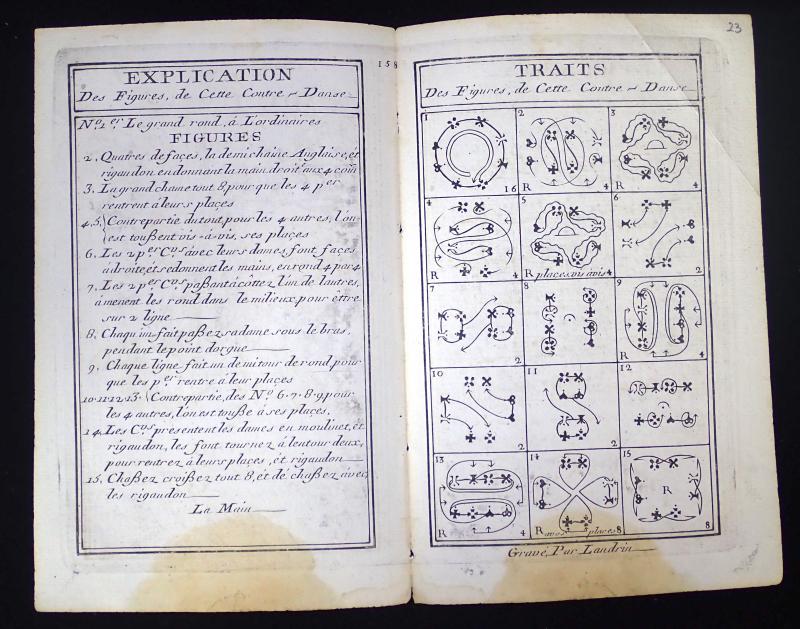 158
EXPLICATION
Des Figures, de Cette Contre-Danse
No. 1er. Le grand rond, à L'ordinaires
FIGURES
2. Quatres defaçes, la demi chaine Anglaise, et
rigaudon en donnant la main droit aux 4 coin
3. La grand chaine tout 8, pour que les 4 per
rentrent à leurs plaçes
4.5. Contrepartie du tout, pour les 4 autres, l'on
est toußent vis-à-vis, ses plaçes
6. Les 2 pers Crs avec leurs dames font, façes
à droite, et se donnent les mains, en rond 4 par 4
7. Les 2 pers Crs paßant à cottez l'un de lautres,
amenent les rond dans le milieux pour ettre
sur 2 ligne
8. Chaqu'un fait paßez sa dame sous le bras,
pendant le point d'orgue
9. Chaque ligne fait un demi tour de rond, pour
que les pers rentre à leur plaçes
10. 11. 12. 13. Contrepartie, des No. 6. 7. 8. 9. pour
les 4 autres, l'on est toußt à ses plaçes,
14. Les Crs presentent les dames en moulinet, et
rigaudon, les font tournez à lentour deux,
pour rentrez à leurs plaçes, et rigaudon
15. Chaßez croißez tout 8, et dé chaßez avec
les rigaudon
La Main
23
TRAITS
Des Figures, de Cette Contre-Danse
1 2 3
16 R 4 R 4
4 5 6
R 4 R places vis avis 4 2
7 8 9
2 R 4
10 11 12
2 2
13 14 15
R
R 4 R avos places 8 8
Gravé, Par Landrin